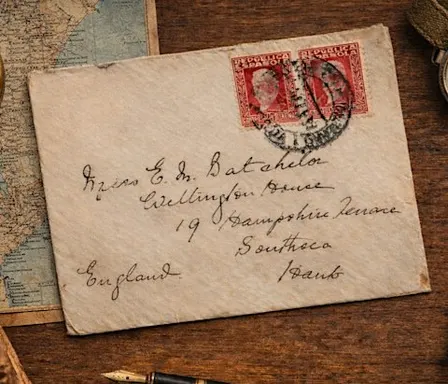 REPUBLICA ESPAÑOLA REPUBLICA ESPAÑOLA
E. M. Batchelor
Wellington House
19 Hampshire Terrace
Southsea
England Hants